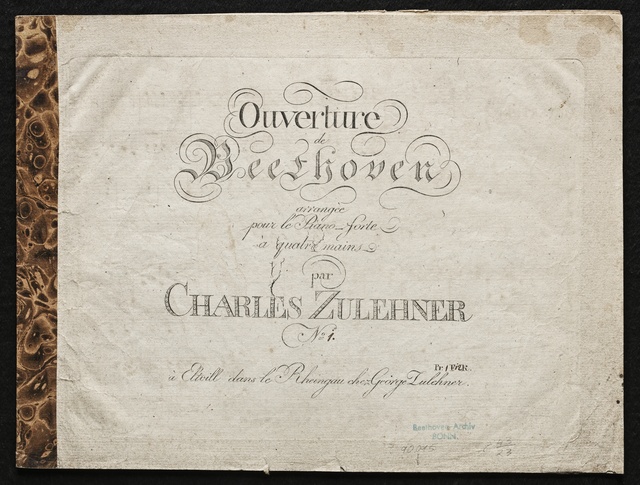 Ouverture
de
Beethoven
arrangée
pour le Piano-forte
à quatre mains
par
CHARLES ZULEHNER
No. 1.
à Eltvill dans le Rheingau chez George Zulehner.
Beethoven Archiv
BONN